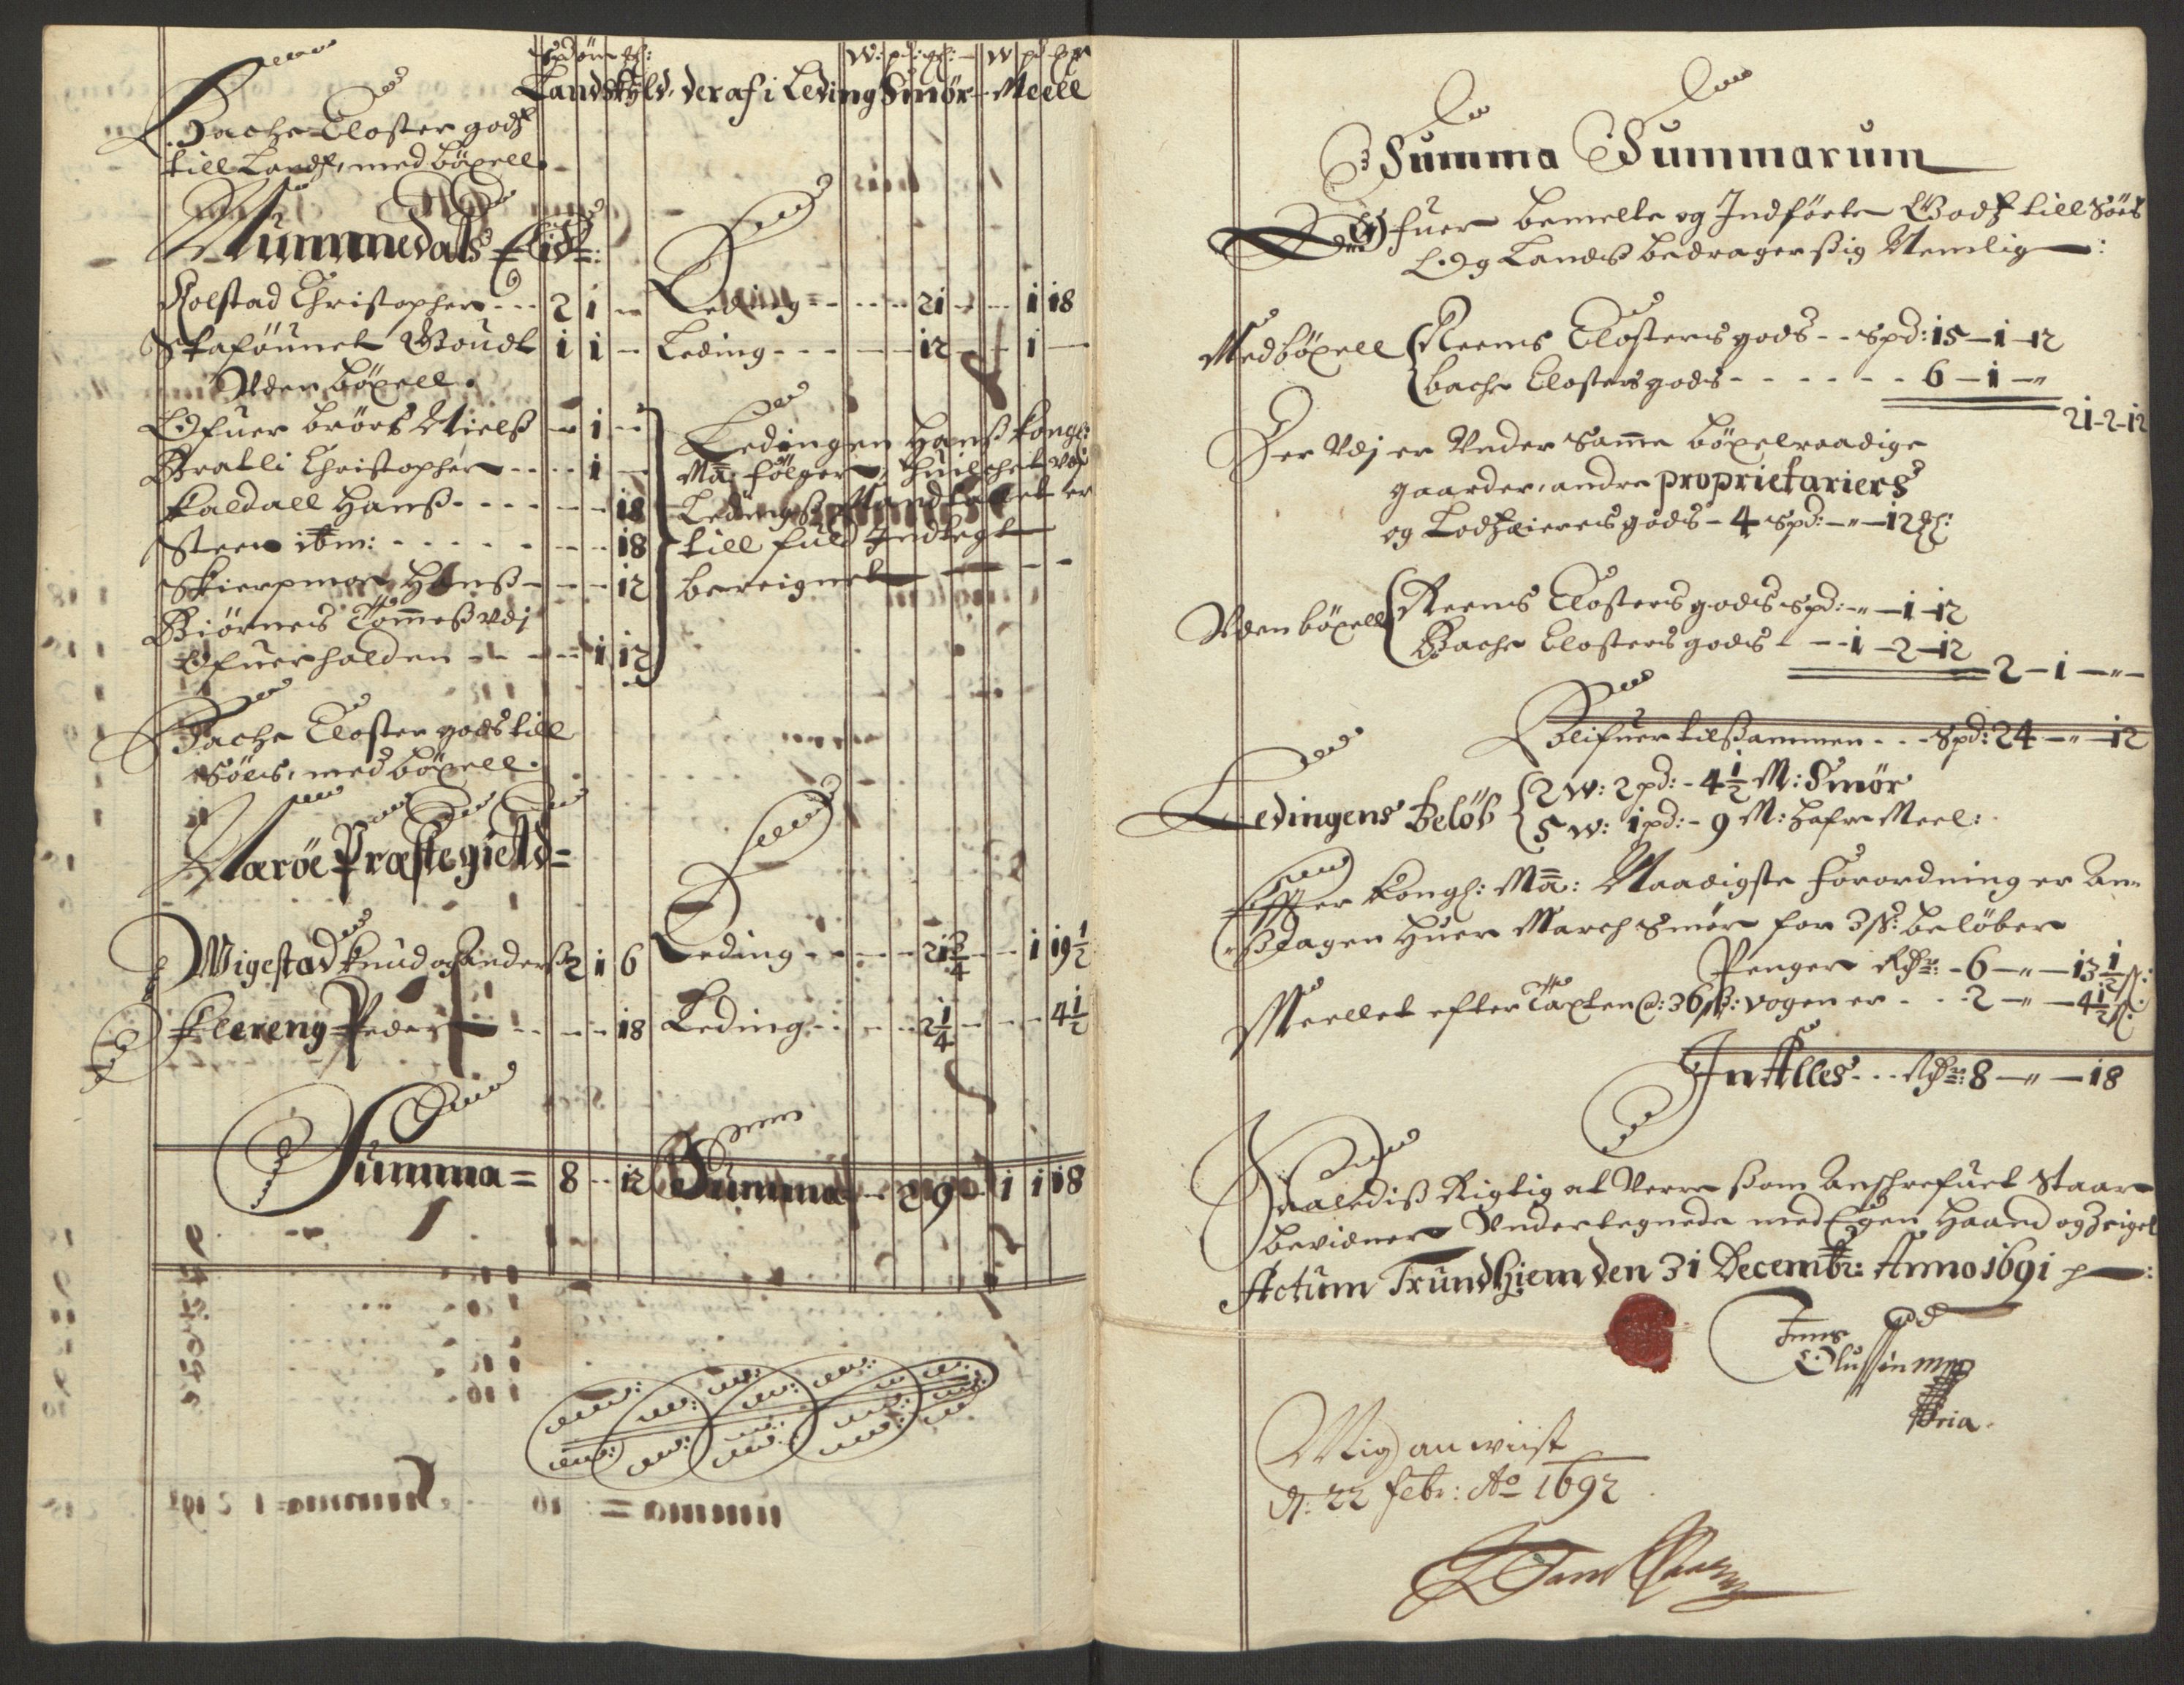 Spd ört ℔: W: pd: ℔: W pd ℔
Landskyld, deraf i Leding Smør Meell
Bache Closter godtz
till Landtz, med böxell.
Nummedals
Rolstad Christopher - - - 2 1 - Leding - - - - - 21 - - - 1 18
Skaføunet Goudt 1 1 - Leding - - - - - 12 - - 1 -
Uden böxell.
Ofuer brørs Nielß - 1 -
Bratli Christopher - - - - 1 -
Kaldall Hanß - - - - - - 18
Steen ibm: - - - - - - - 18
Skierpmoe Hanß - - - 12
Biörnes Tommeß udj
Ofuerhalden - - - - 1 12
Ledingen Hanß Kongl:
Maÿ: følger, huilchet ved
Ledingß Mandtallet er
till fuld Indtegt
bereignet
Bache Closter gods till
Søes, med böxell.
Nærøe Præstegield =
Wigestad Knud og Anderß 2 1 6 Leding - - - - 21 3/4 - - - 1 19 1/2
Flereng Peder - - - - 18 Leding - - - - 2 1/4 - - - 4 1/2
Summa = 8 - - 12 Summa - - 2 9 - 1 1 18
Summa Summarum
Ofuer bemelte og Indförte Godtz till Søes
Og Lands bedrager sig Nemlig:
Med böxell Reens Closters gods - - Spd: 15 - 1 - 12
Bache Closters gods - - - - - - - 6 - 1 - "
21 - 2 - 12
Der udj er Under samme böxelraadige
gaarder, andre proprietariers
og Lodtzeieres gods - 4 Spd: - " - 12 ℔:
Uden böxell Reens Closters gods Spd: - " - 1 - 12
Bache Closters gods - - 1 - 2 - 12
2 - 1 - " -
Blifuer tilsammen - - - Spd: 24 - " - 12
Ledingens Beløb 2 W: 2 pd: - 4 1/2 M: Smør
5 W: 1 pd: - 9 M: hafre Meel:
Effter Kongl: Maÿ: Naadigste forordning er An-
ßlagen huer March Smør for 3 ß: beløber
Penger Rdr: - 6 - " - 13 1/2 ß:
Meellet efter Taxten @: 36 ß: vogen er - - - 2 - " - 4 1/2 ß:
In Alles - - - Rdr: 8 - " - 18
Saaledis Rigtig at Vere som Anschrefuet Staar
bevidner Undertegnede med Egen Haand og Zeigel
Actum Trundhiem den 31 Decembr: Anno 1691
Jens
Olussøn mpp
pria.
Mig anwiist
d: 22 Febr: Ao 1692